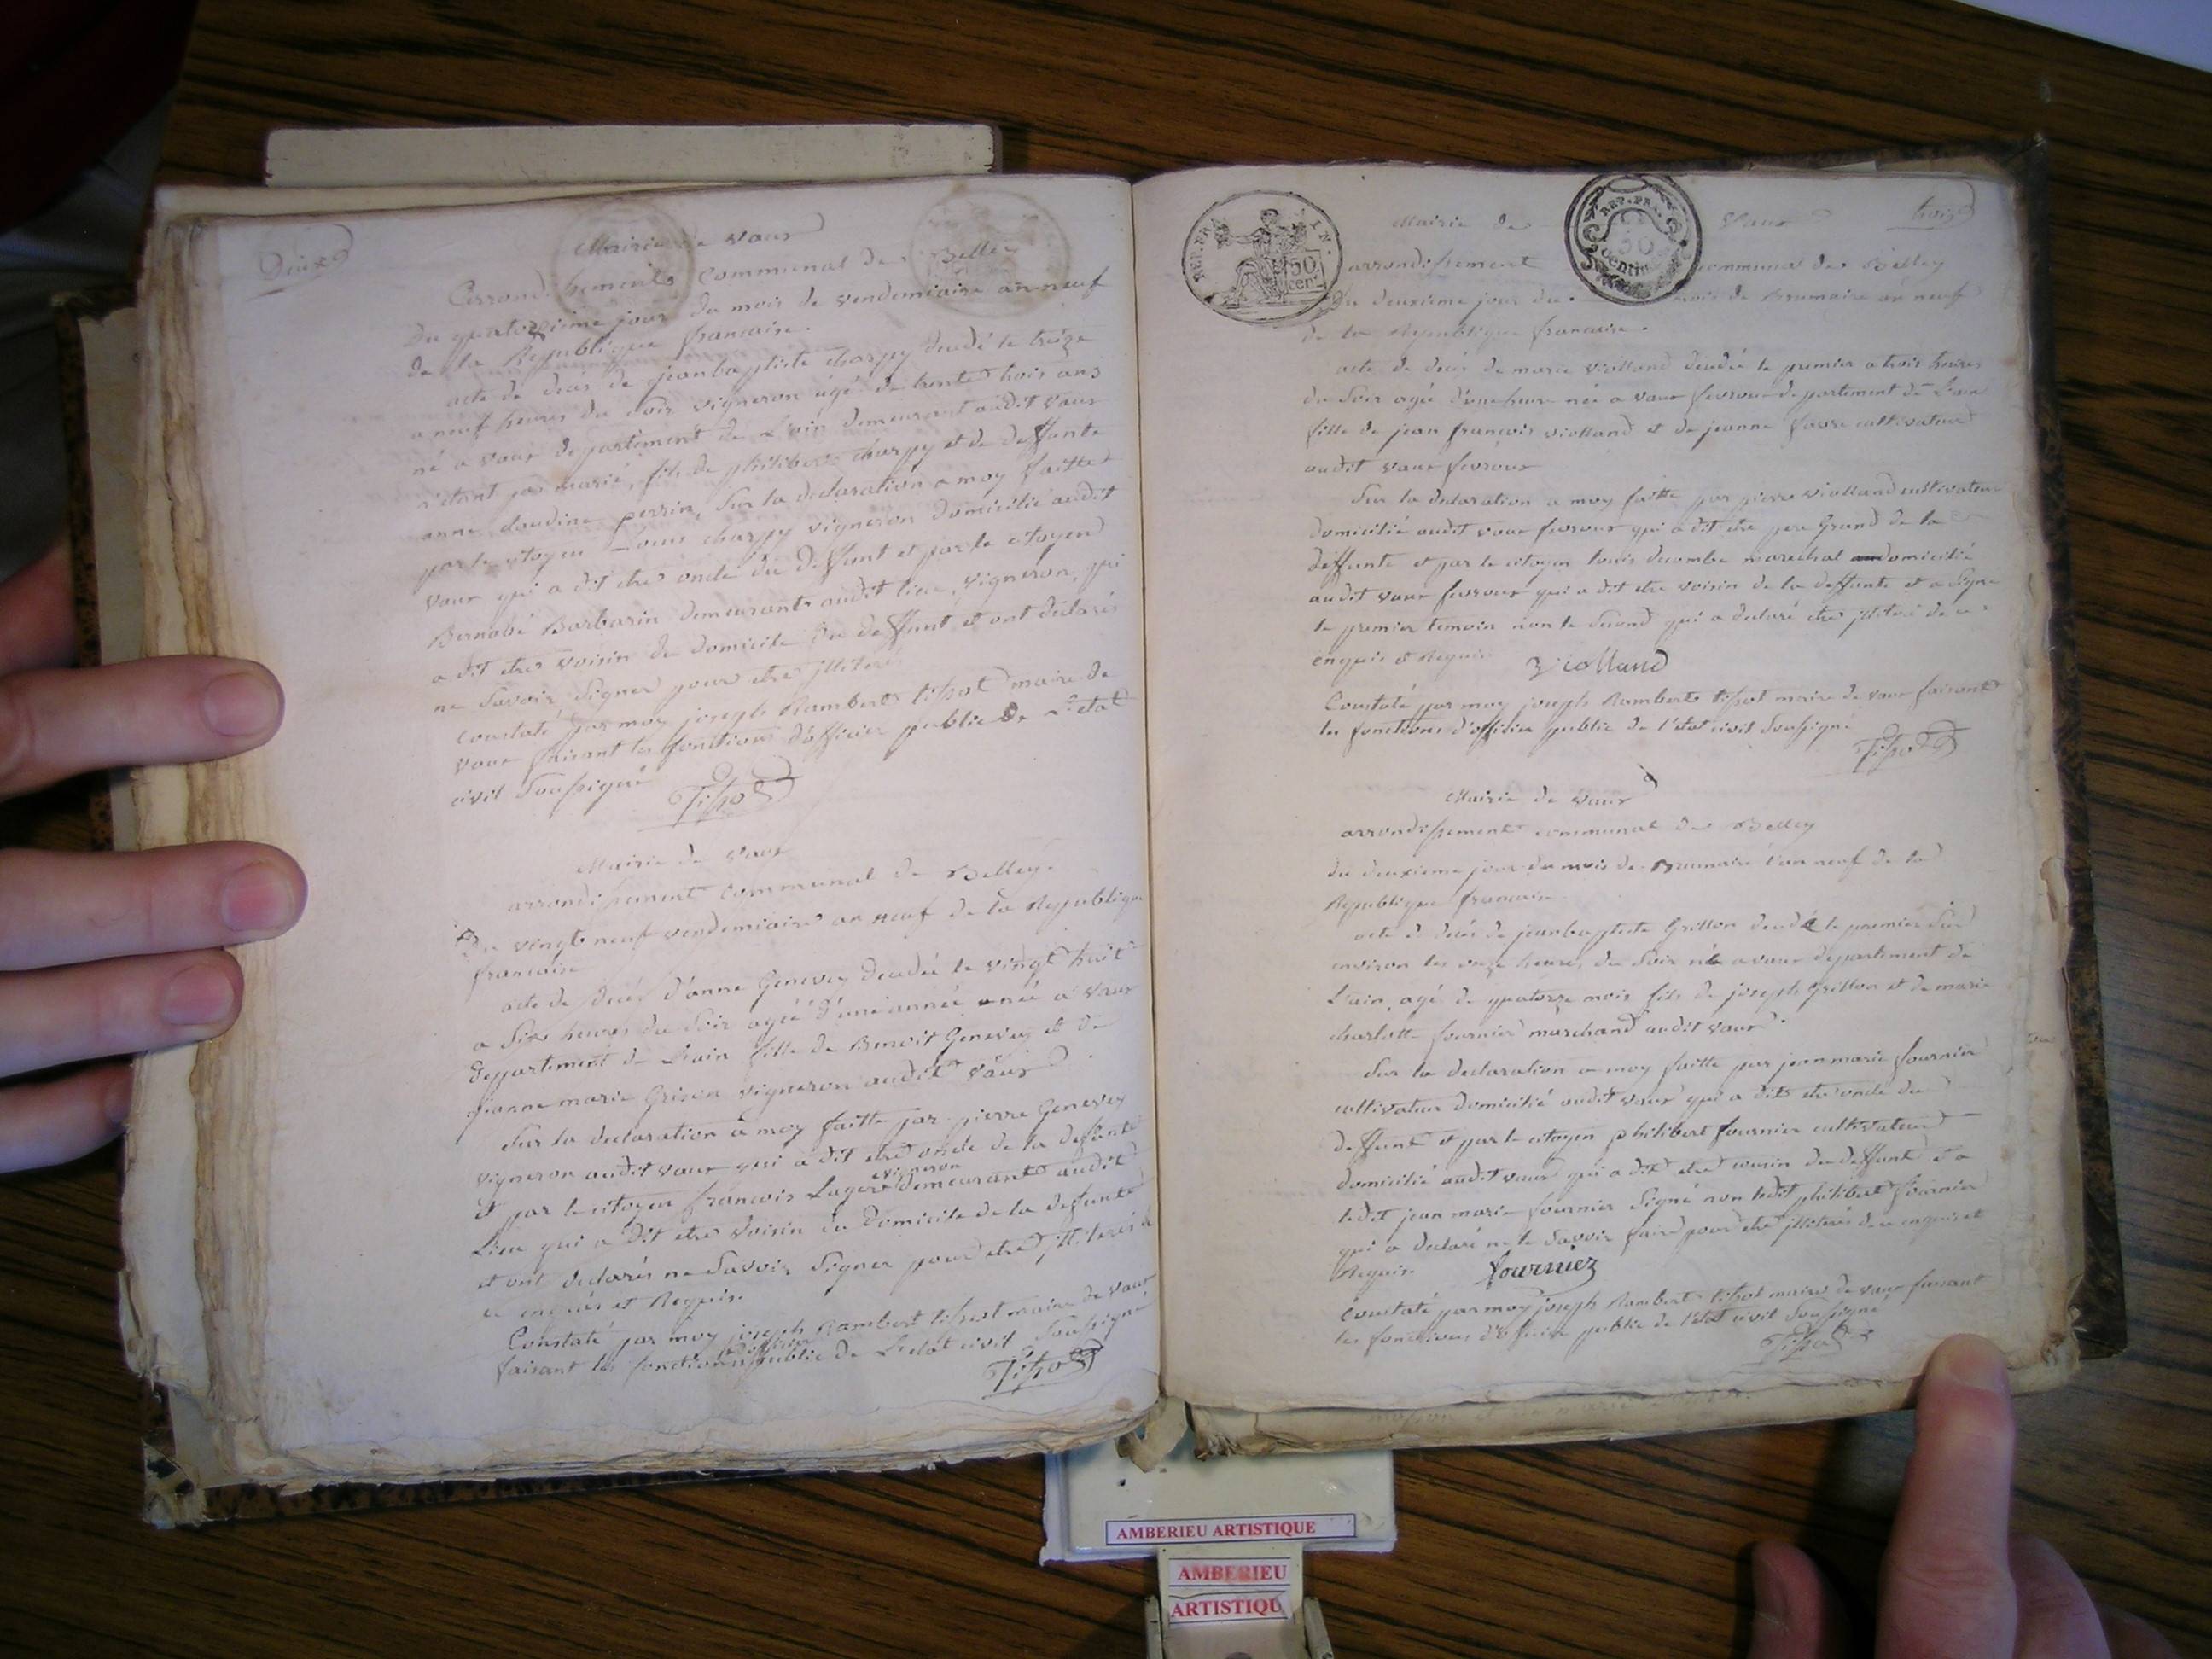 Deux
Mairie de vaux
arrondissement communal de Belley
Du quatorzieme jour du mois de vendemiaire an neuf
de la Republique francaise.
acte de deces de jean baptiste charpy decedé le treize
a neuf heures du soir vigneron agé de trente trois ans
né a vaux departement de L'ain demeurant audit vaux
n'etant pas marié, fils de philibert charpy et de deffunte
anne claudine perrin, Sur la declaration a moy faitte
par le citoyen Louis charpy vigneron domicilié audit
vaux qui a dit etre oncle du deffunt et par le citoyen
Bernabé Barbarin demeurant audit lieu, vigneron, qui
a dit etre voisin de domicile du deffunt et ont declarés
ne Savoir Signer pour etre jlliteré
constaté par moy joseph Rambert tissot maire de
vaux faisant les fonctions d'officier public de L'etat
civil Soussigné
Tissot
Mairie de vaux
arrondissement communal de Belley.
Du vingt neuf vendemiaire an neuf de la Republique
francaise
acte de deces d'anne Genevey decedée le vingt huit
a Six heures du Soir agée d'une année née a vaux
departement de L'ain fille de Benoit Genevey et de
jeanne marie Grison vigneron audit vaux
Sur la declaration a moy faitte par pierre Genevey
vigneron audit vaux qui a dit etre oncle de la defunte
vigneron
et par le citoyen francois demeurant audit
Lieu qui a dit etre voisin du domicile de la defunte
et ont declarés ne Savoir Signer pour etre jlliterés de
ce enquis et Requis.
Constaté par moy joseph Rambert tissot maire de vaux
d'officier
faisant les fonctions public de L'etat civil Soussigné
Tissot
REP. FRA. 50 cent.
REP. FRA. 50 centimes
Mairie de Vaux
trois
arrondissement communal de Belley
Du deuxieme jour du mois de Brumaire an neuf
de la Republique francaise.
acte de decés de marie violland decedée le premier a trois heures
du Soir agée d'une heure née a vaux fevroux departement de L'ain
fille de jean francois violland et de jeanne favre cultivateur
audit vaux fevroux
Sur la declaration a moy faitte par pierre violland cultivateur
domicilié audit vaux fevroux qui a dit etre pere Grand de la
deffunte et par le citoyen louis decombe marechal domicilié
audit vaux fevroux qui a dit etre voisin de la deffunte et a Signé
le premier temoin non le Second qui a declaré etre jlliteré de ce
enquis et Requis violland
Constaté par moy joseph Rambert tissot maire de vaux faisant
les fonctions d'officier public de l'etat civil Soussigné
Tissot
Mairie de vaux
arrondissement communal de Belley
du deuxieme jour du mois de Brumaire l'an neuf de la
Republique francaise
acte de decés de jean baptiste Grillon decedé le premier Sur
environ les onze heures du Soir né a vaux departement de
L'ain, agé de quatorze mois fils de joseph Grillon et de marie
charlotte fournier marchand audit vaux.
Sur la declaration a moy faitte par jean marie fournier
cultivateur domicilié audit vaux qui a dit etre oncle du
deffunt et par le citoyen philibert fournier cultivateur
domicilié audit vaux qui a dit etre cousin du deffunt et a
ledit jean marie fournier Signé non ledit philibert fournier
qui a declaré ne le Savoir faire pour etre jlliterés de ce enquis et
Requis fournier
Constaté par moy joseph Rambert tissot maire de vaux faisant
les fonctions d'officier public de l'etat civil Soussigné
Tissot
AMBERIEU ARTISTIQUE
AMBERIEU
ARTISTIQU